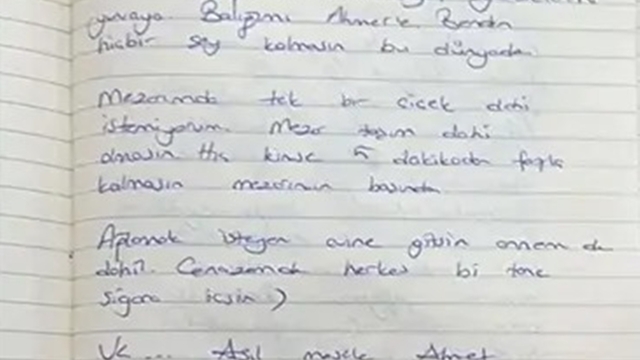 yuvaya. Balığımı Ahmet'e. Benden
hiçbir şey kalmasın bu dünyada.
Mezarımda tek bir çiçek dahi
istemiyorum. Mezar taşım dahi
olmasın. Hiç kimse 5 dakikadan fazla
kalmasın mezarımın başında.
Ağlamak isteyen evine gitsin annem de
dahil. Cenazemde herkes bi tane
sigara içsin )
Ve... Asıl mesele Ahmet